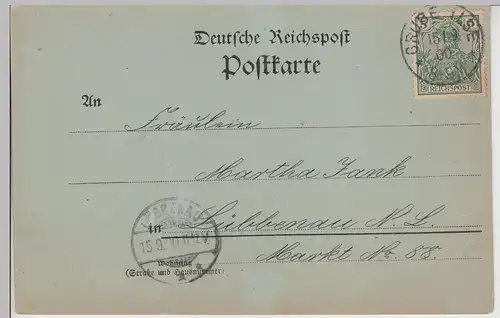 GRUBE ILSE
15.9.
00
REICHSPOST
Deutsche Reichspost
Postkarte
An
Fräulein
Martha Jank
in Lübbenau N. L.
Markt No. 88.
15.9.
Wohnung
(Straße und Hausnummer)